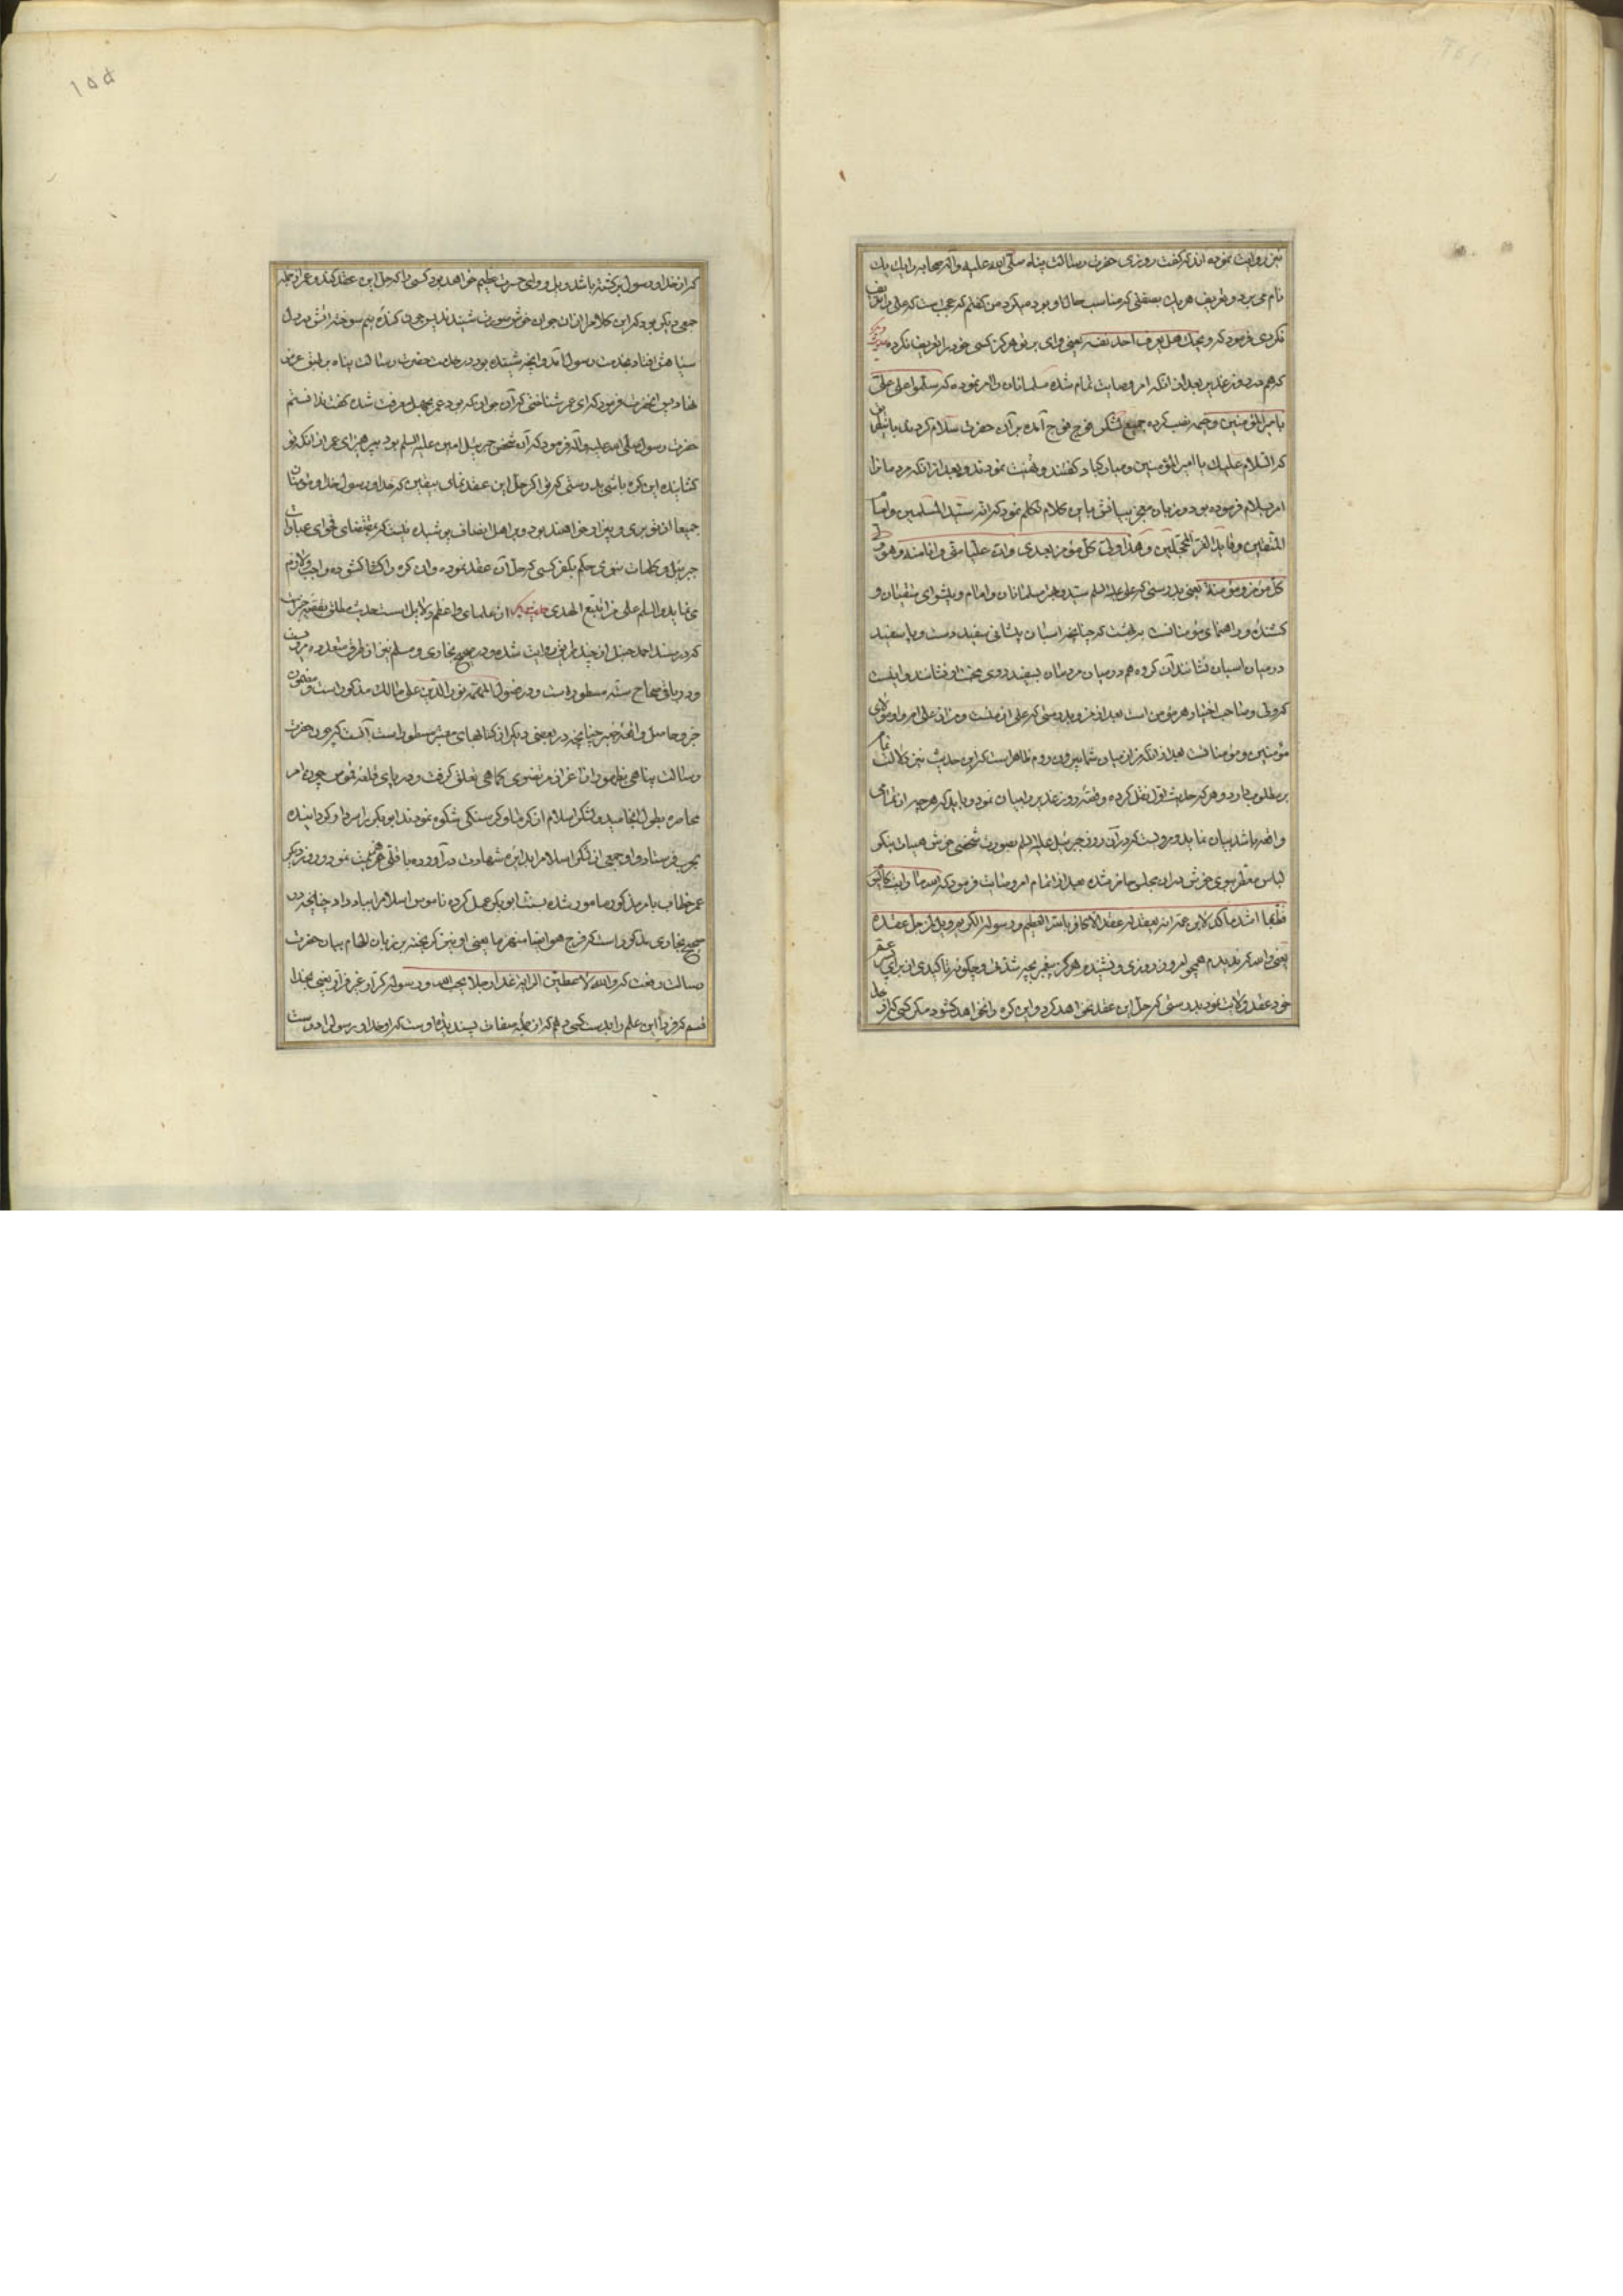 نیز روایت نموده اند که گفت روزی حضرت رسالت پناه صلی الله علیه وآله صحابه را یک یک
نام می برد و تعریف هریک بصفتی که مناسب حال او بود میکرد من گفتم که عجب است که علی را تعریف
نکردی فرمود که ویحک هل یعرف احد نفسه یعنی وای بر تو هرگز کسی خود را تعریف نکرده
که هم در روز غدیر بعد از انکه امر وصایت تمام شده مسلمانان را امر نموده که سلموا علی علی
بامیر المؤمنین وخیمه نصب کرده جمیع لشکر فوج فوج آمده بر آن حضرت سلام کردند
که السلام علیک یا امیر المؤمنین ومبارکباد گفتند و تهنیت نمودند و بعد از انکه مردمانرا
امر بسلام فرموده بود و بزبان معجز بیانش باین کلام تکلم نمود که انه سید المسلمین وامام
المتقین وقاید الغر المحجلین وهذا ولی کل مؤمن بعدی وان علیا منی وانا منه وهو ولی
کل مؤمن ومؤمنة یعنی بدرستی که علی علیه السلم سید و بهتر مسلمانان وامام وپیشوای متقیان و
کشنده و راهنمای مؤمنانست بربهشت که چنانچه اسبان پیشانی سفید دست و پا سفید
در میان اسبان نشانند آن گروه هم در میان مردمان بسفید روی نشانند و اینست
که ولی وصاحب اختیار هر مؤمن است بعد از من و بدرستی که علی از منست ومن از علی ام و او مولای
مؤمنین ومؤمنانست بعد از انکه من از میان شما بیرون روم و ظاهر است که این حدیث نیز دلالت تمام
بر مطلوب دارد و هرکه حدیث اول نقل کرده وقصه روز غدیر را بیان نموده باید که هرچه از تمامی
واقعه باشد بیان نماید و مرویست که در آن روز جبرئیل علیه السلم بصورت شخصی خوش هیات نیکو
لباس معطر بوی خوش در ان مجلس حاضر شده بعد از اتمام امر وصایت فرمود که تالله ما رایت کالیوم
قط ما اشد ما اکد لابن عمه انه یعقد له عقدا لا کافر بالله العظیم ورسوله الکریم ویل لمن حل عقده
یعنی والله که ندیدم همچو امروز روزی و نشنیدم هرگز پیغمبر بچه شدت وچگونه تاکیدی از برای ابن عم
خود عقد ولایت نمود بدرستی که حل این عقد نخواهد کرد و این گره را نخواهد گشود مگر کسی که کافر
۱۵۵
که از خدا و رسول برگشته باشد ویل و وای حسرت عظیم خواهد بود کسی را که حل این عقد کند و عمر از جمله
جمعی دیگر بود که این کلام را از ان جوان خوش صورت شنیدند پس چون کنده نیم سوخته آتش در دل
سیاهش افتاد بخدمت رسول آمد و آنچه شنیده بود در خدمت حضرت رسالت پناه بر طبق عرض
نهاد پس آنحضرت فرمود که ای عمر شناختی که آن جوان که بود عمر بجهل معرفت شده گفت ندانستم
حضرت رسول صلی الله علیه وآله فرمود که آن شخص جبرئیل امین علیه السلم بود بپرهیز ای عمر از انکه تو
گشاینده این گره باشی بدرستی که تو اگر حل این عقد نمای بیقین که خدا و رسول خدا و مؤمنان
جمیعا از تو بری و بیزار خواهند بود و بر اهل انصاف پوشیده نیست که بمقتضای فحوای عبارات
جبرئیل و کلمات نبوی حکم بکفر کسی که حل آن عقد نموده و ان گره را گشوده واجب ولازم
می نماید والسلم علی من اتبع الهدی از علمای واعظم دلایل است حدیث
که در مسند احمد حنبل از چند طریق روایت شده و در صحیح بخاری و مسلم نیز از طرق متعدده
و در باقی صحاح سته مسطور است و در فصول المهمه نور الدین علی مالکی مذکور است ومضمون
خبر و حاصل واقعه خیبر چنانچه در بعضی دیگر از کتابهای معتبر مسطور است آنست که چون حضرت
رسالت پناهی قلعه قموص چون امر
محاصره بطول انجامید و لشکر اسلام از کرما و گرسنگی شکوه نمودند ابوبکر را سردار گردانیده
بحرب فرستاد و او جمعی از لشکر اسلام را بدایره شهادت در آورده با قی هزیمت نمود و روز دیگر
عمر خطاب بامر مذکور مامور شده بسنت ابوبکر عمل کرده ناموس اسلام را بباد داد چنانچه در
صحیح بخاری مذکور است که فرجع هو ایضا منهزما یعنی او نیز گریخته بر زبان الهام بیان حضرت
رسالت رفت که والله لاعطین الرایة غدا رجلا یحب الله ورسوله کرار غیر فرار یعنی بخدا
قسم که فردا این علم را بدست کسی دهم که از جمله صفات پسندیده اوست که او خدا و رسول را دوست